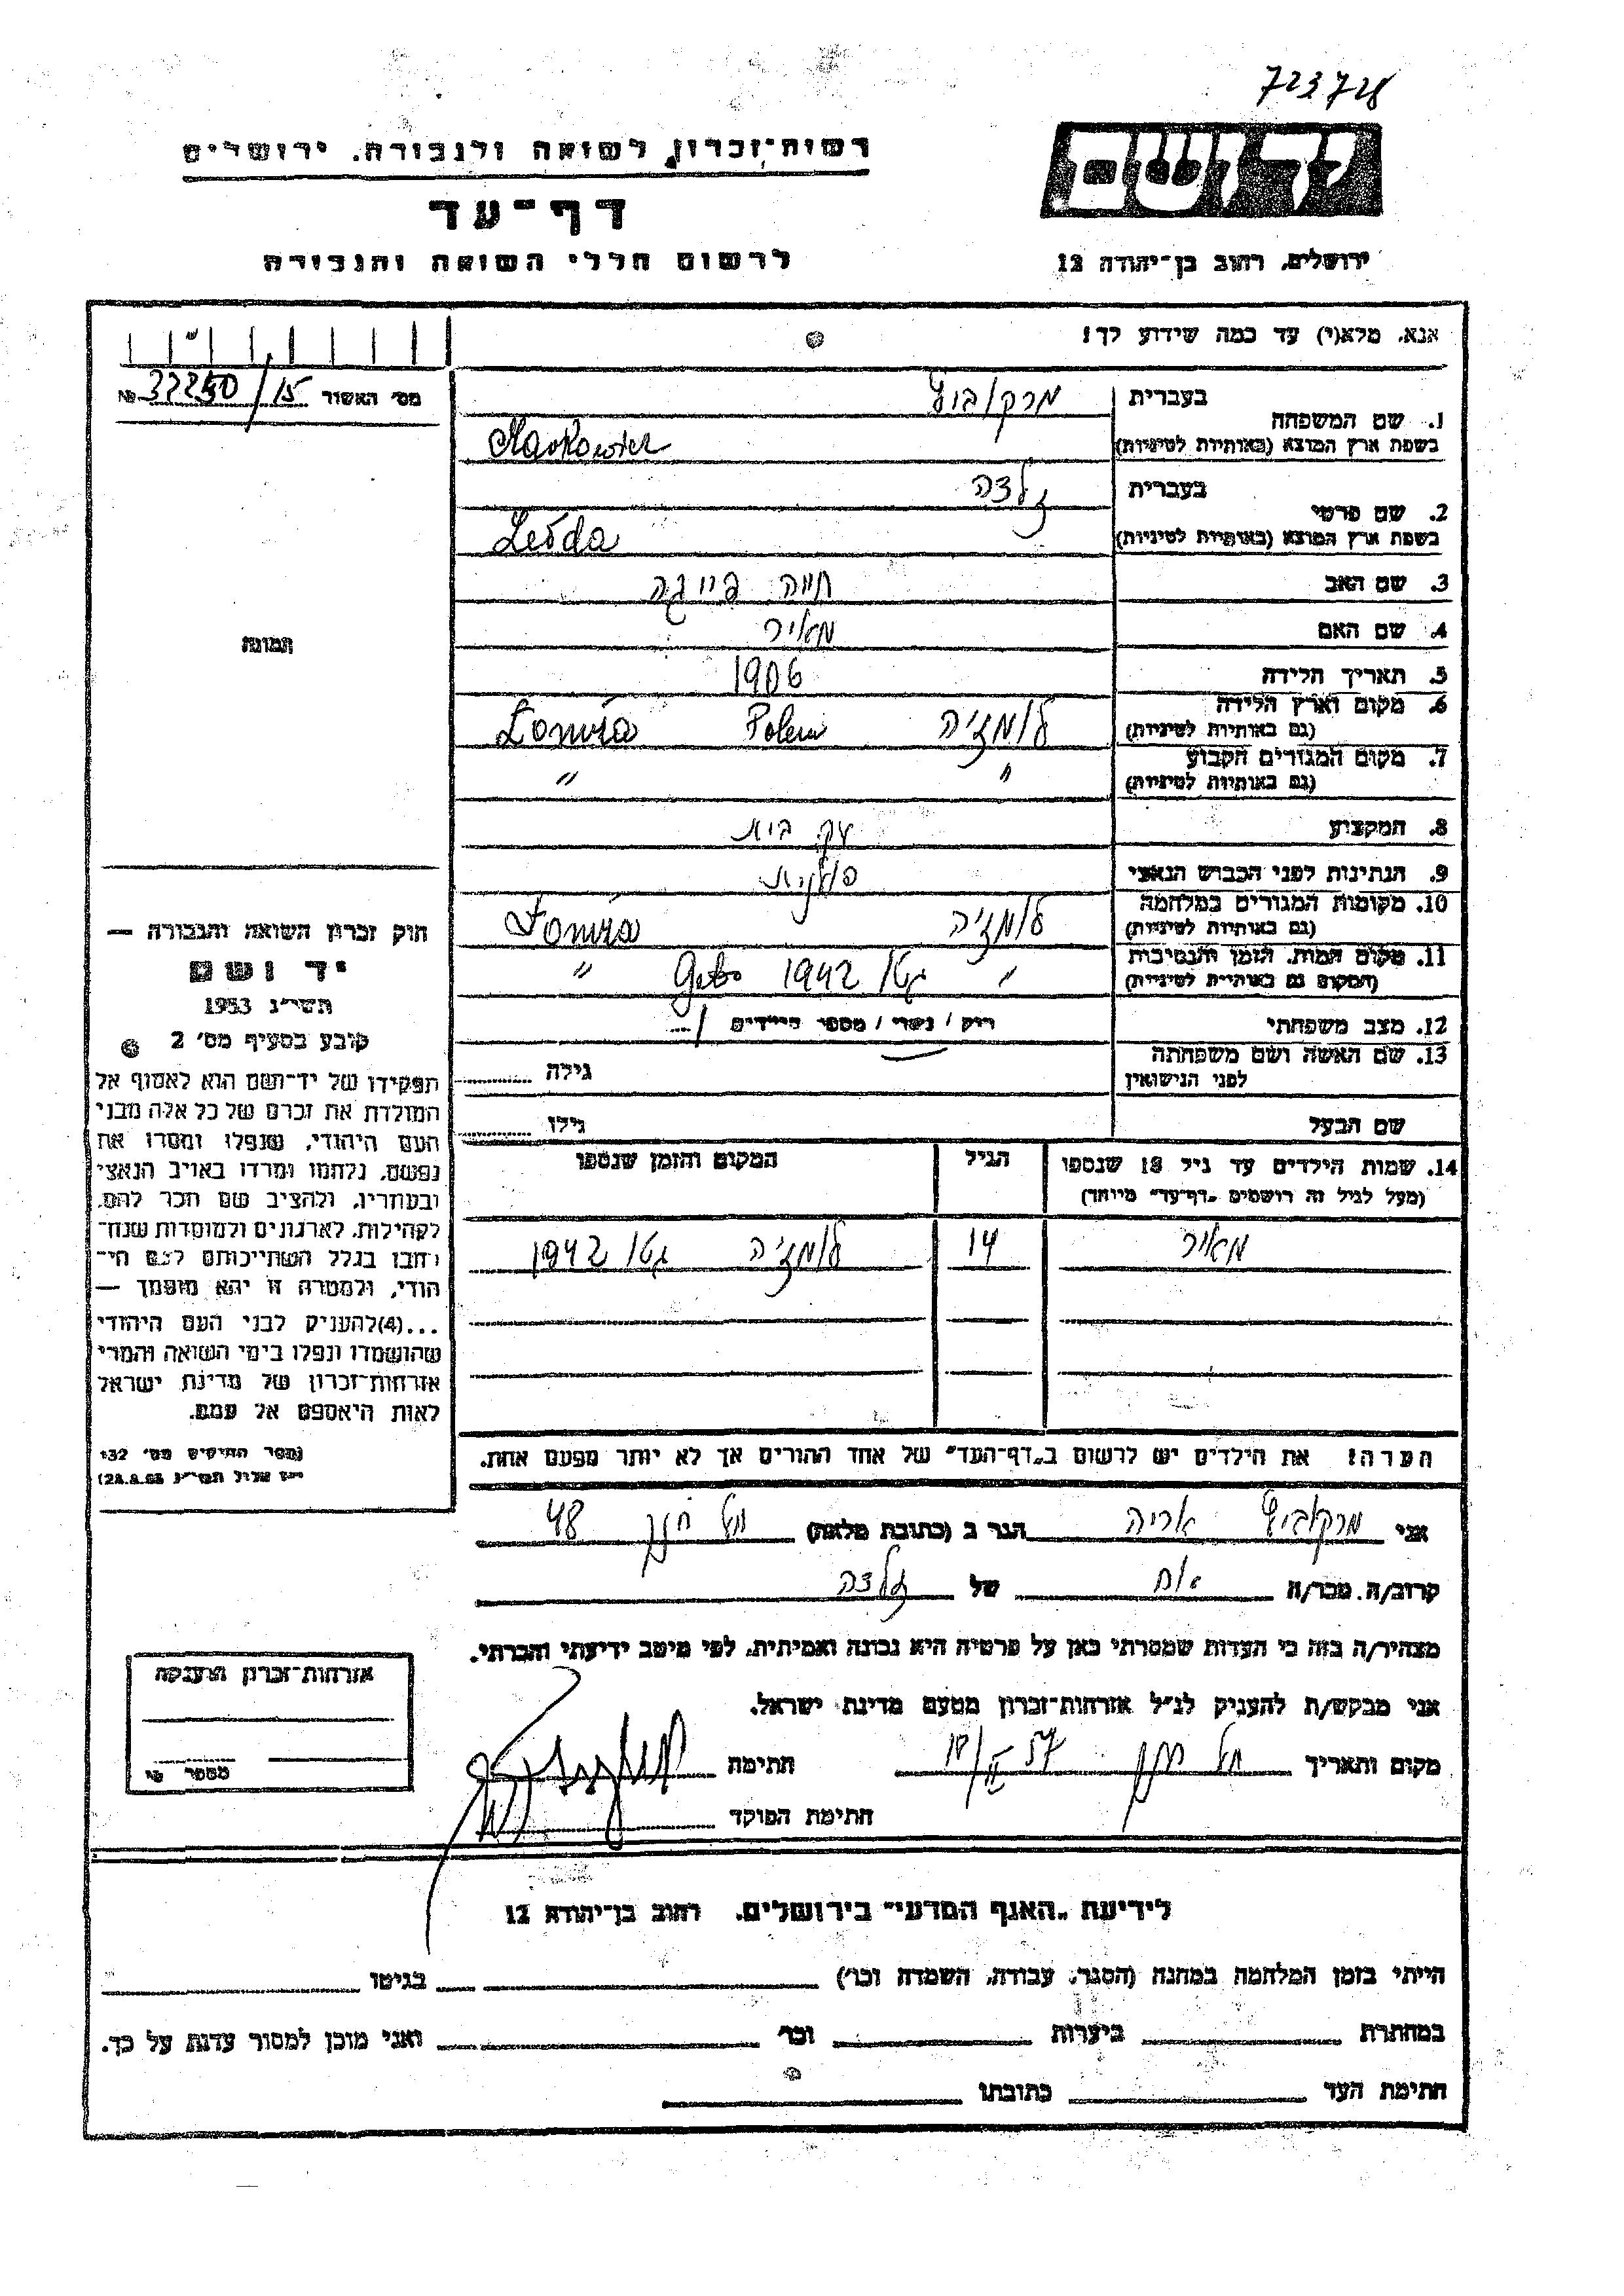 723728
רשות־זכרון לשואה ולגבורה. ירושלים
יד ושם
דף־עד
לרשום חללי השואה והגבורה
ירושלים, רחוב בן־יהודה 12
אנא, מלא(י) עד כמה שידוע לך!
מס׳ האשור 15/ № 32250
1. שם המשפחה
בעברית מרקוביץ
בשפת ארץ המוצא (באותיות לטיניות)
2. שם פרטי
בעברית זלדה
בשפת ארץ המוצא (באותיות לטיניות) Zelda
3. שם האב חיה פייגה
4. שם האם מאיר
5. תאריך הלידה 1906
6. מקום וארץ הלידה לומז׳ה Polen Łomża
(גם באותיות לטיניות)
7. מקום המגורים הקבוע " "
(גם באותיות לטיניות)
8. המקצוע עק. בית
9. הנתינות לפני הכבוש הנאצי פולנית
10. מקומות המגורים במלחמה לומז׳ה Łomża
(גם באותיות לטיניות)
11. מקום המות, הזמן והנסיבות " גטו 1942 Geto "
(המקום גם באותיות לטיניות)
12. מצב משפחתי רוק / נשוי / מספר הילדים 1
13. שם האשה ושם משפחתה
לפני הנישואין
גילה
שם הבעל גילו
14. שמות הילדים עד גיל 18 שנספו הגיל המקום והזמן שנספו
(מעל לגיל זה רושמים „דף־עד" מיוחד)
מאיר 14 לומז׳ה גטו 1942
הערה: את הילדים יש לרשום ב„דף־העד" של אחד ההורים אך לא יותר מפעם אחת.
תמונה
חוק זכרון השואה והגבורה —
יד ושם
תשי״ג 1953
קובע בסעיף מס׳ 2
תפקידו של יד־ושם הוא לאסוף אל
המולדת את זכרם של כל אלה מבני
העם היהודי, שנפלו ומסרו את
נפשם, נלחמו ומרדו באויב הנאצי
ובעוזריו, ולהציב שם וזכר להם,
לקהילות, לארגונים ולמוסדות שנח־
רבו בגלל השתייכותם לעם הי־
הודי, ולמטרה זו יהא מוסמך —
...(4)להעניק לבני העם היהודי
שהושמדו ונפלו בימי השואה והמרי
אזרחות־זכרון של מדינת ישראל
לאות היאספם אל עמם.
(ספר החוקים מס׳ 132
י״ז אלול תשי״ג 28.8.53)
אני מרקוביץ אריה הגר ב (כתובת מלאה) 48
קרוב/ה. מכר/ה אח של זלדה
מצהיר/ה בזה כי העדות שמסרתי כאן על פרטיה היא נכונה ואמיתית, לפי מיטב ידיעתי והכרתי.
אני מבקש/ת להעניק לנ״ל אזרחות־זכרון מטעם מדינת ישראל.
מקום ותאריך 57 חתימה
חתימת הפוקד
אזרחות־זכרון הוענקה
מספר
לידיעת „האגף המדעי" בירושלים, רחוב בן־יהודה 12
הייתי בזמן המלחמה במחנה (הסגר, עבודה, השמדה וכו׳) בגיטו
במחתרת ביערות וכו׳ ואני מוכן למסור עדות על כך.
חתימת העד כתובתו